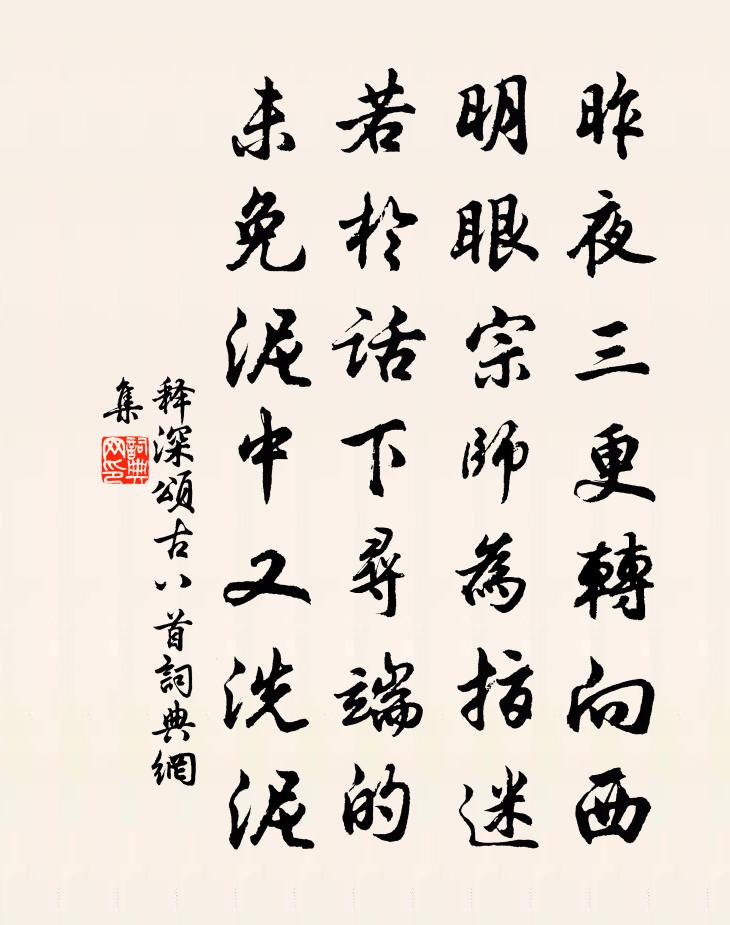 昨夜三更轉向西
明眼宗師為指迷
若於話下尋端的
未免泥中又洗泥
释深頌古八首詞典網
集
詞典
网印